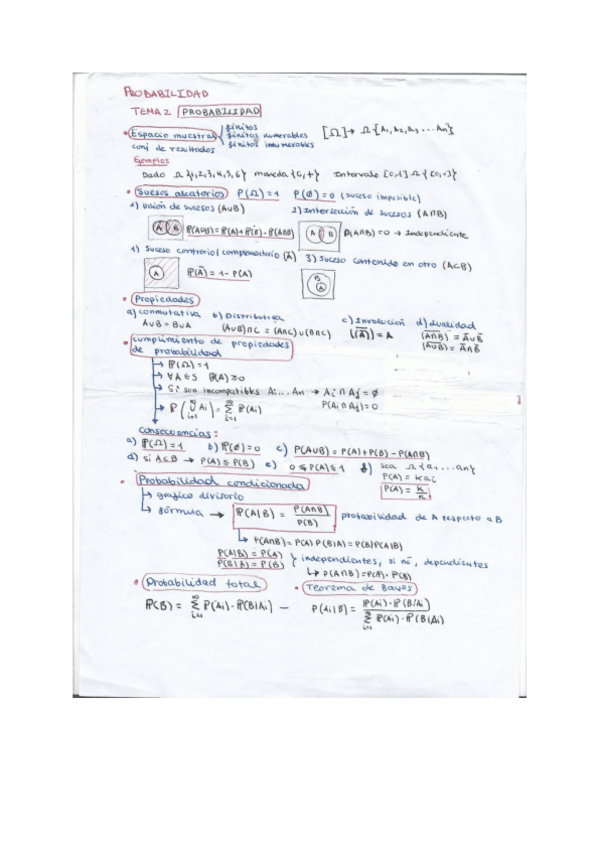 PROBABILIDAD
TEMA 2 PROBABILIDAD
• Espacio muestral finitos
finitos numerables [Ω]→ Ω{A1, A2, A3 ... An}
conj de resultados finitos innumerables
Ejemplos
Dado Ω{1,2,3,4,5,6} moneda {C,+} Intervalo [0,1] Ω{[0,1]}
• Sucesos aleatorios P(Ω)=1 P(∅)=0 (suceso imposible)
1) Unión de sucesos (A∪B) 2) Intersección de sucesos (A∩B)
A B P(A∪B) = P(A)+P(B)-P(A∩B) A B P(A∩B)=0 → Independiente
1) Suceso contrario/complementario (A̅) 3) Suceso contenido en otro (A⊂B)
A P(A̅) = 1 - P(A) B A
• Propiedades
a) conmutativa b) Distributiva c) Involución d) dualidad
A∪B = B∪A (A∪B)∩C = (A∩C)∪(B∩C) [(A̅)] = A (A∩B)‾ = A̅∪B̅
(A∪B)‾ = A̅∩B̅
• cumplimiento de propiedades
de probabilidad
→ P(Ω)=1
→ ∀A∈S P(A)≥0
→ Si son incompatibles Ai...An → Ai∩Aj = ∅
→ P(∪ Ai) = Σ P(Ai) P(Ai∩Aj)=0
i=1 i=1
consecuencias:
a) P(Ω)=1 b) P(∅)=0 c) P(A∪B) = P(A)+P(B)-P(A∩B)
d) si A⊂B → P(A)≤P(B) e) 0≤P(A)≤1 f) sea Ω{a1...an}
P(A) = k ai
P(A) = k/n
• Probabilidad condicionada
→ gráfico divisorio
→ fórmula → P(A|B) = P(A∩B)/P(B) probabilidad de A respecto a B
↳ P(A∩B) = P(A) P(B|A) = P(B)P(A|B)
P(A|B) = P(A)
P(B|A) = P(B) } independientes, si no, dependientes
↳ P(A∩B) = P(A)·P(B)
• Probabilidad total • Teorema de Bayes
P(B) = Σ P(Ai)·P(B|Ai) — P(Ai|B) = P(Ai)·P(B|Ai) / Σ P(Ai)·P(B|Ai)